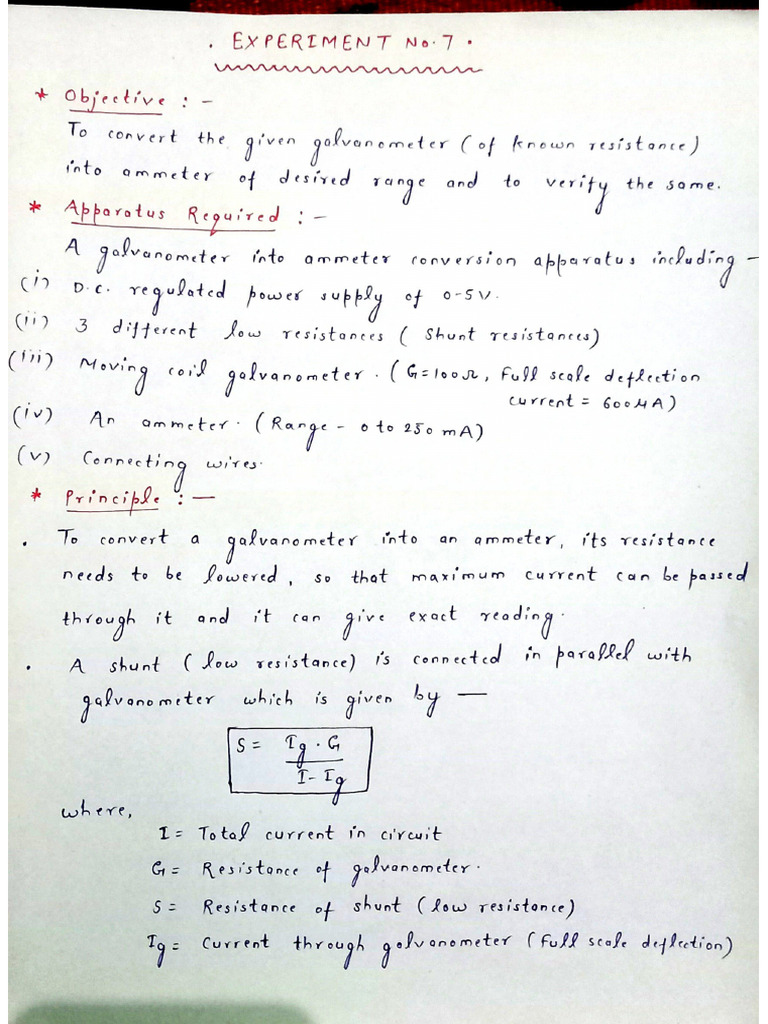 . EXPERIMENT No. 7 .
* Objective : -
To convert the given galvanometer ( of known resistance)
into ammeter of desired range and to verify the same.
* Apparatus Required : -
A galvanometer into ammeter conversion apparatus including -
(i) D.C. regulated power supply of 0-5V.
(ii) 3 different low resistances ( Shunt resistances)
(iii) Moving coil galvanometer. ( G=100Ω, Full scale deflection
current = 600μA)
(iv) An ammeter. (Range - 0 to 250 mA)
(v) Connecting wires.
* Principle : -
. To convert a galvanometer into an ammeter, its resistance
needs to be lowered, so that maximum current can be passed
through it and it can give exact reading.
. A shunt ( low resistance) is connected in parallel with
galvanometer which is given by -
S = Ig . G
I - Ig
where,
I = Total current in circuit
G = Resistance of galvanometer.
S = Resistance of shunt ( low resistance)
Ig = Current through galvanometer ( Full scale deflection)